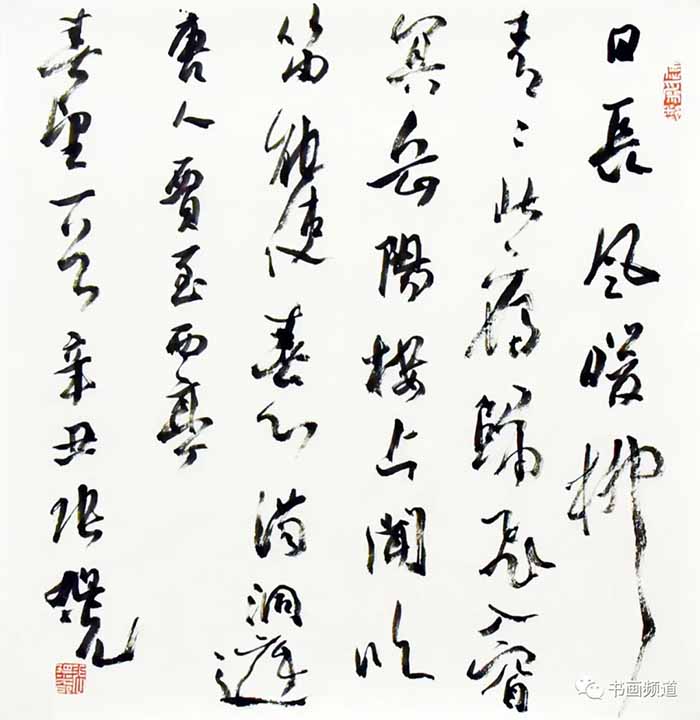 日長風暖柳
青〻北雁歸飛入窅
冥岳陽樓上聞吹
笛能使春心滿洞庭
唐人賈至西亭
春望一首辛丑張旭光
书画频道